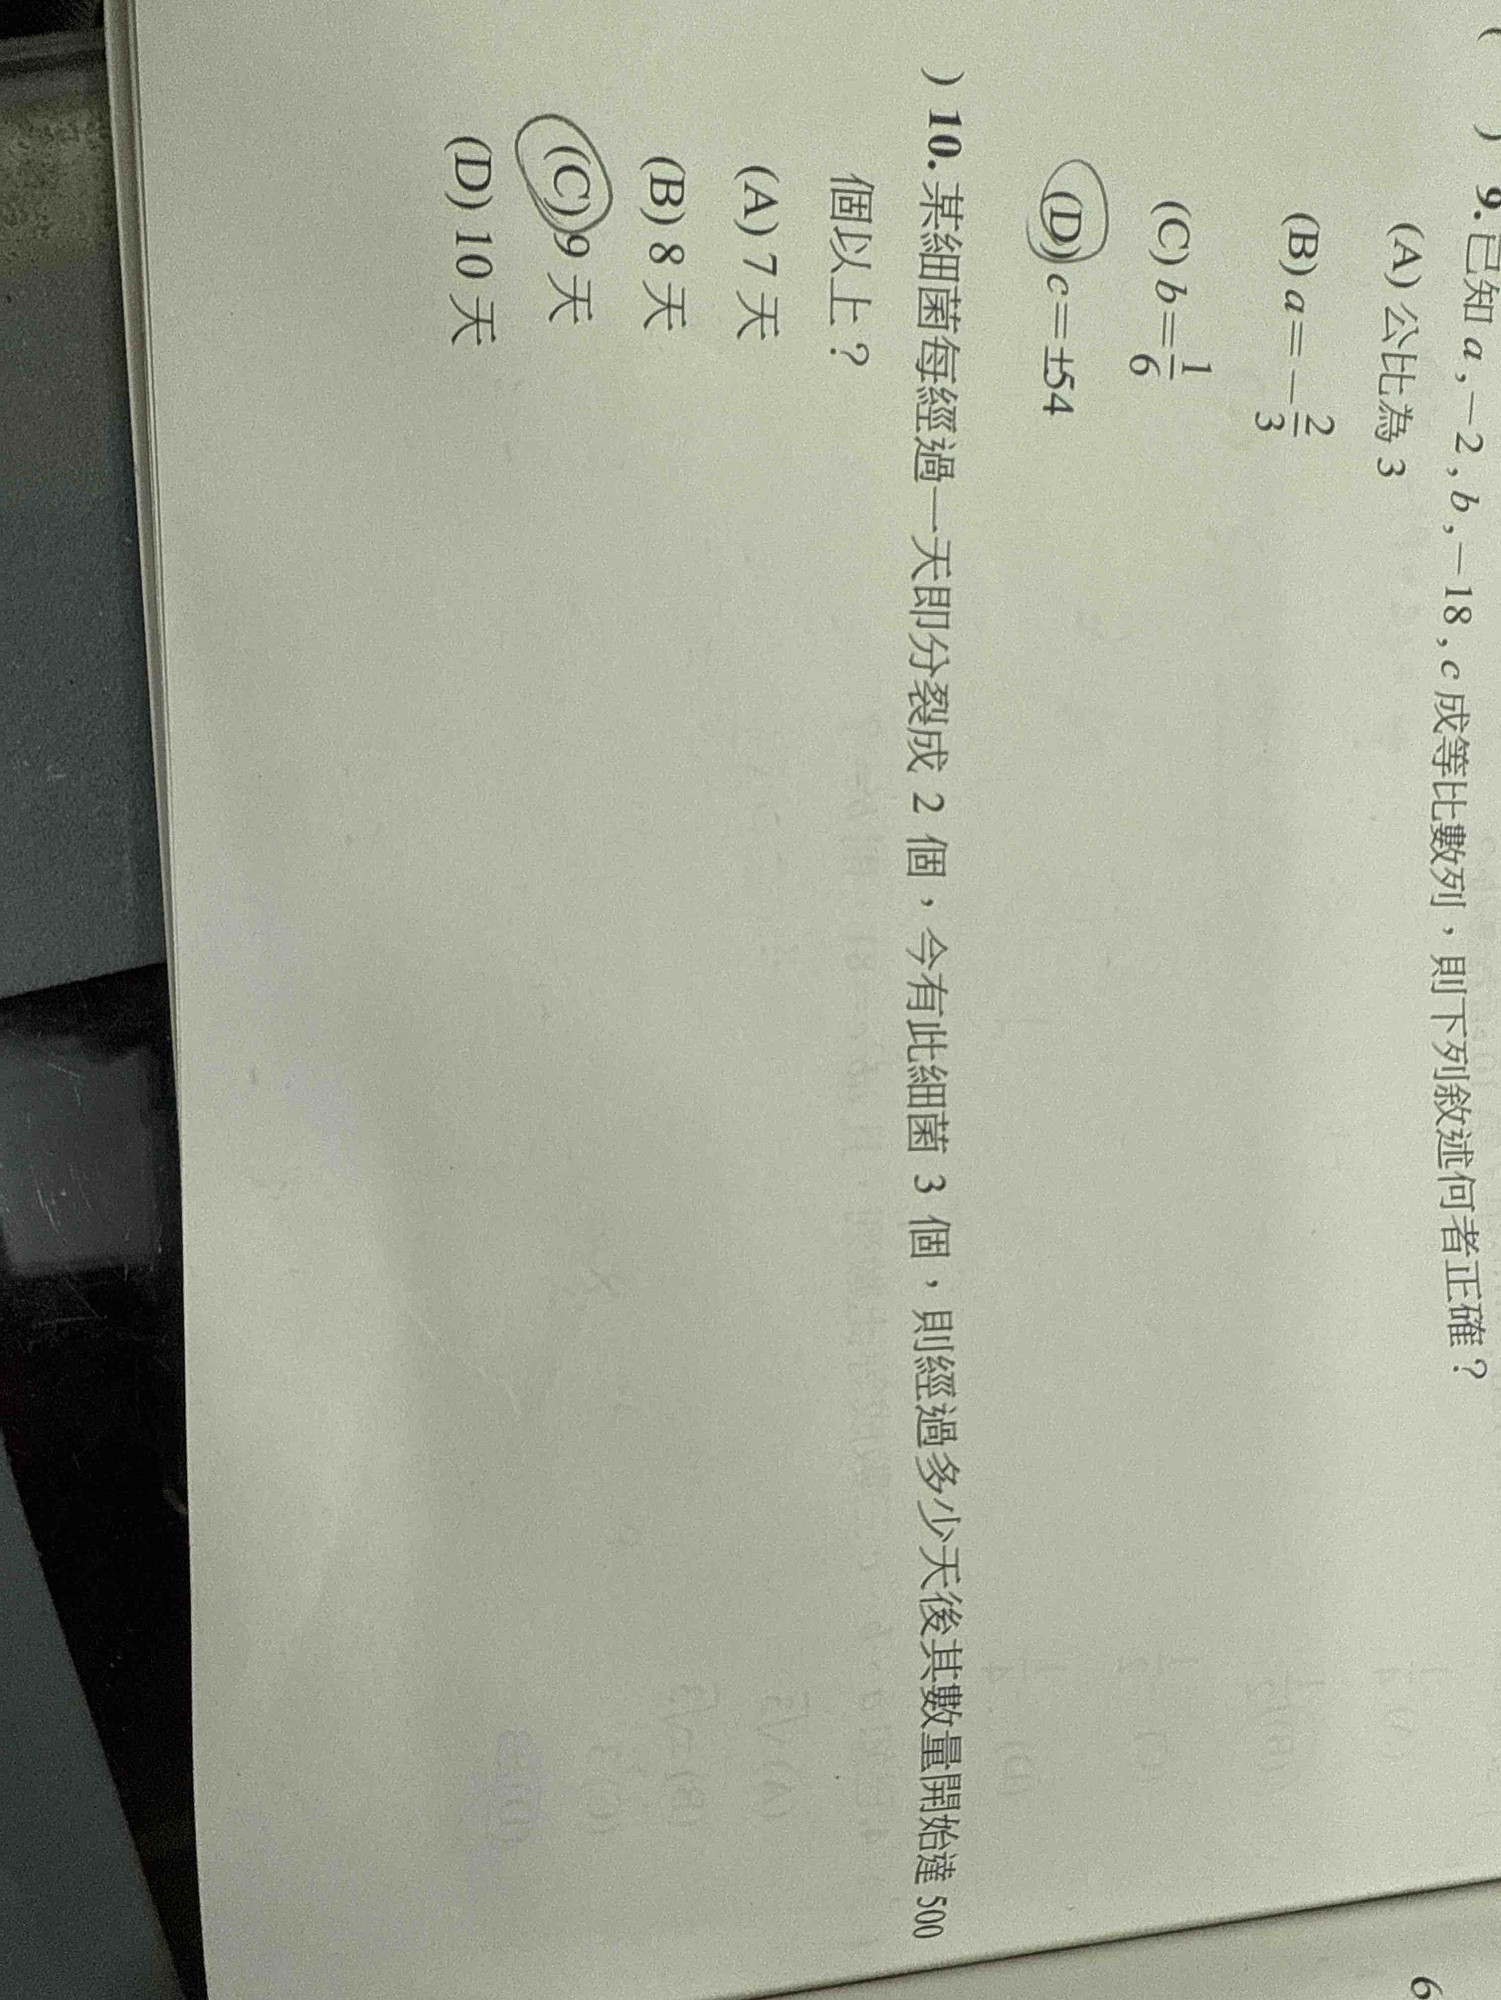 ( ) 9. 已知 a , －2 , b , －18 , c 成等比數列，則下列敘述何者正確？
(A) 公比為 3
(B) a＝－2/3
(C) b＝1/6
(D) c＝±54
) 10. 某細菌每經過一天即分裂成 2 個，今有此細菌 3 個，則經過多少天後其數量開始達 500
個以上？
(A) 7 天
(B) 8 天
(C) 9 天
(D) 10 天
6